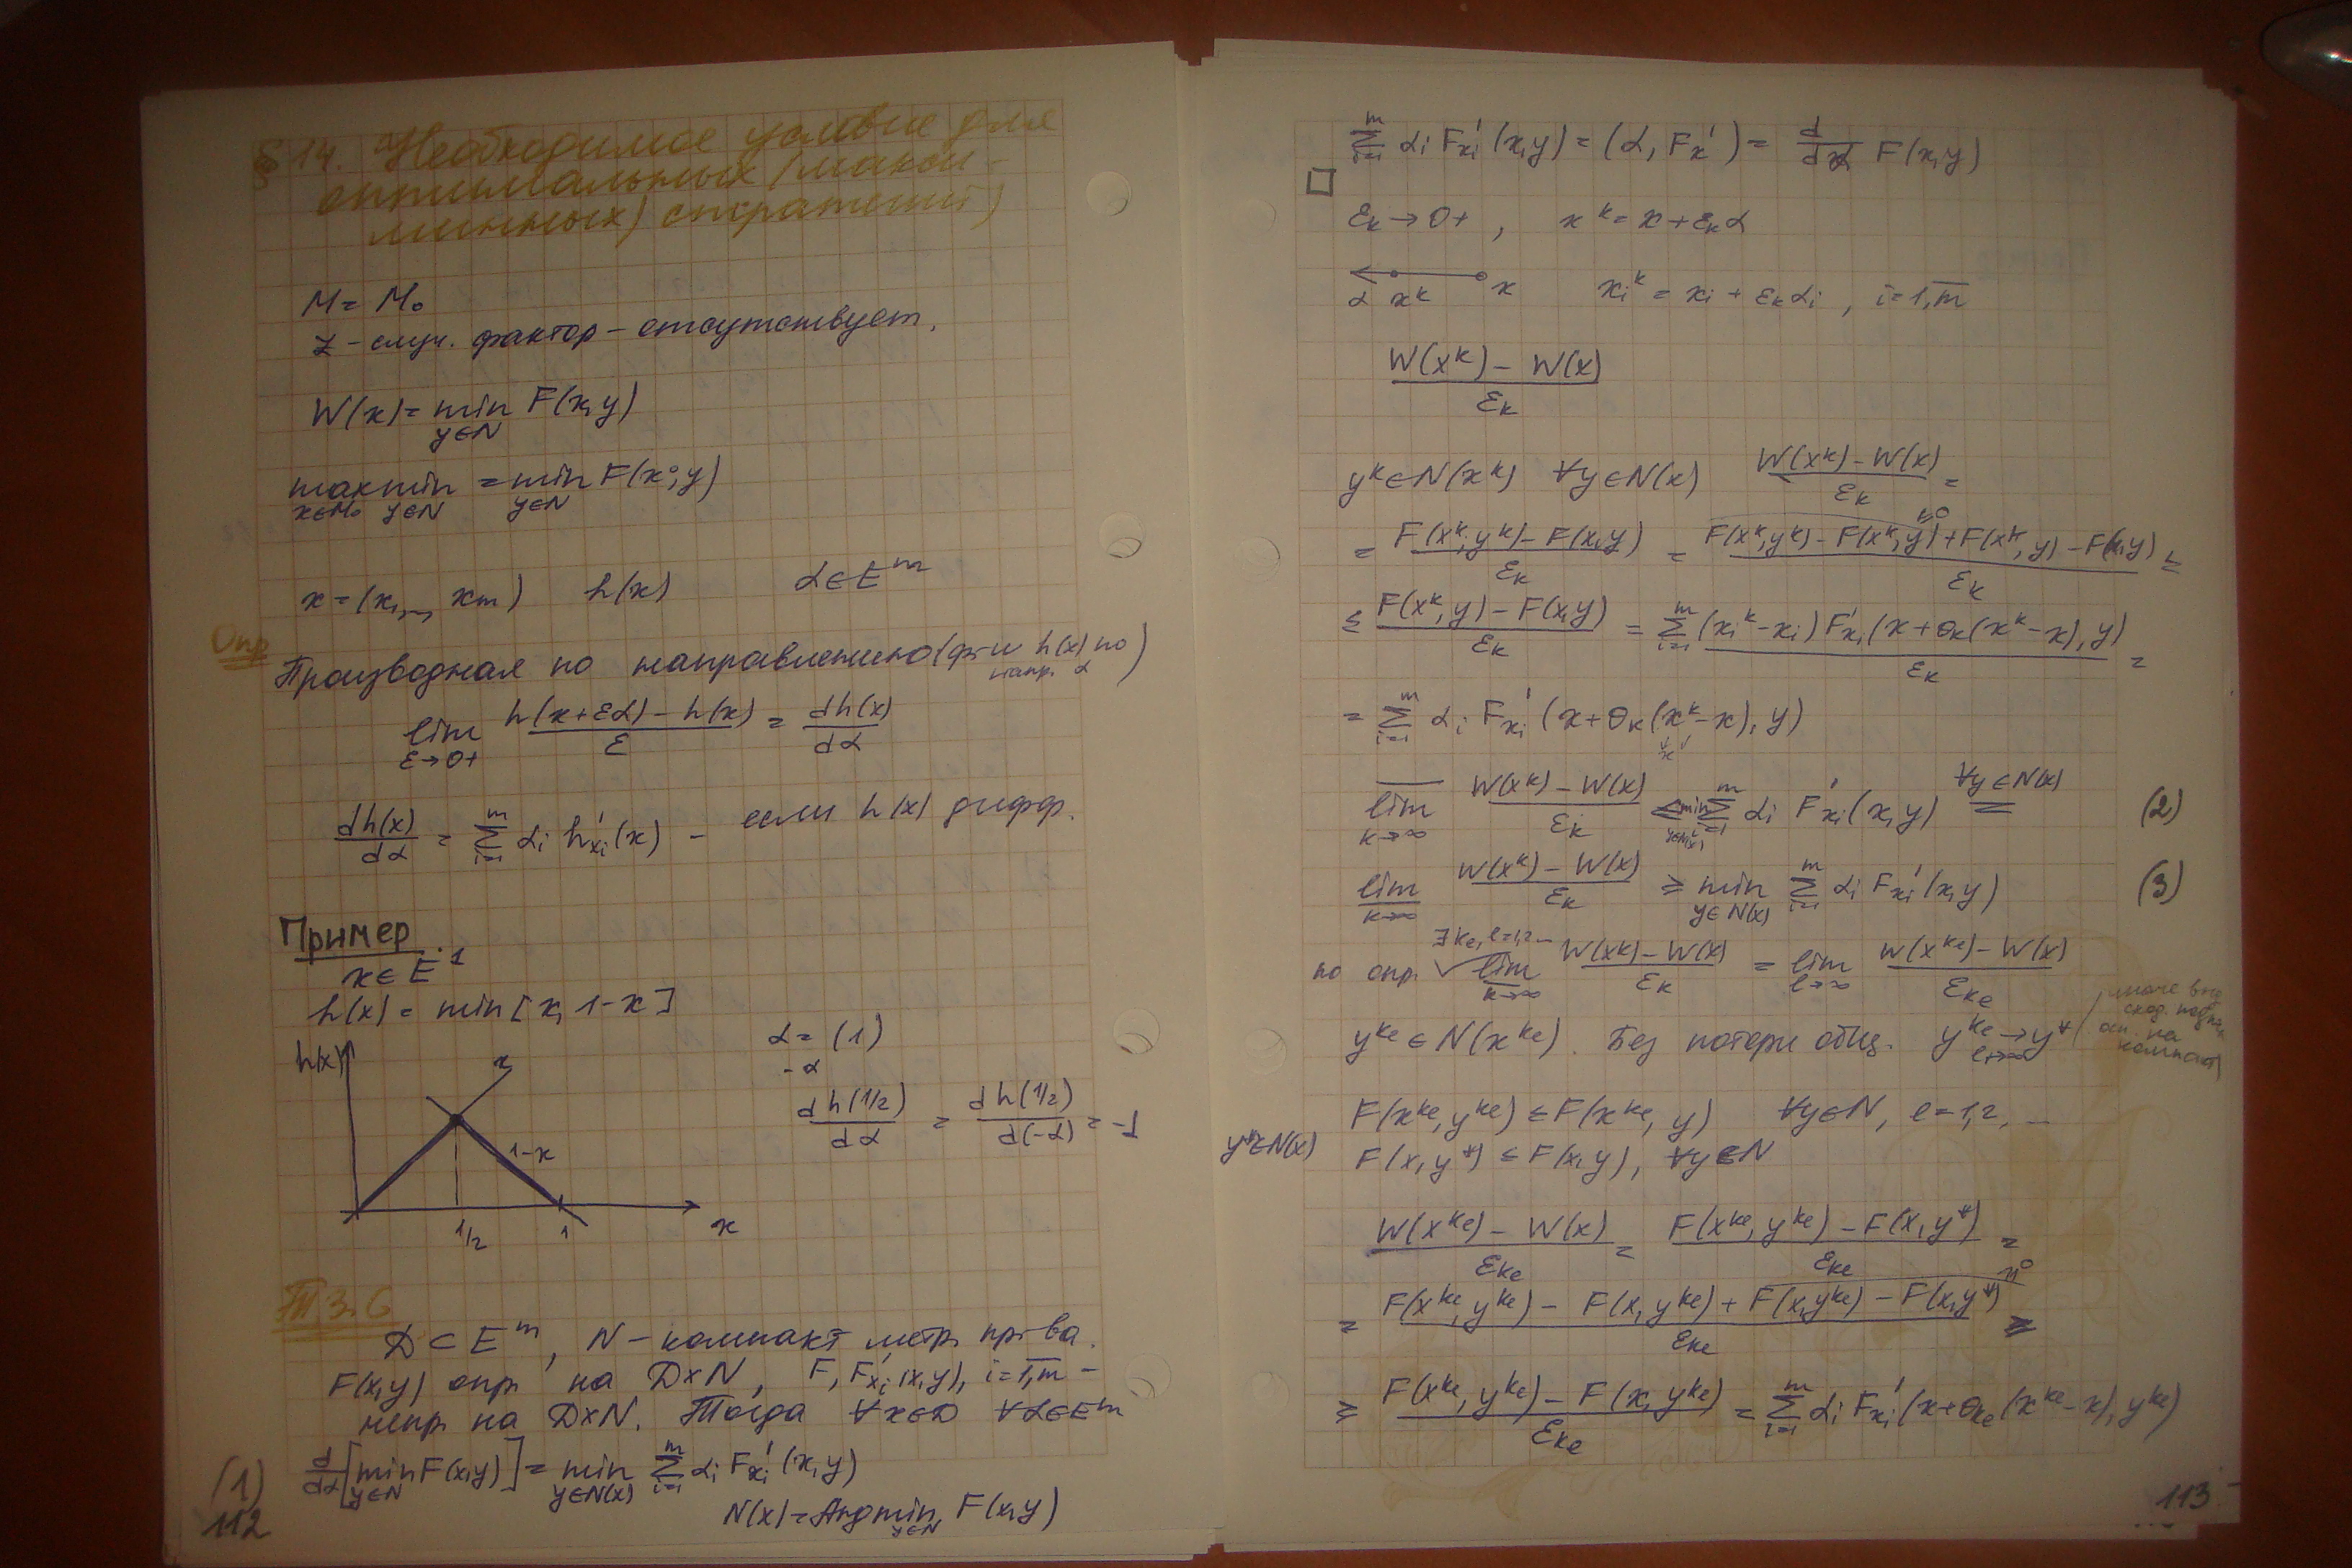 § 14. Необходимое условие для
оптимальных (макси-
минных) стратегий)
M = M₀
z - случ. фактор - отсутствует.
W(x) = min_{y∈N} F(x,y)
max_{x∈M₀} min_{y∈N} = min_{y∈N} F(x⁰, y)
x = (x₁, ..., xₘ) h(x) α ∈ Eᵐ
Опр
Производная по направлению (ф-и h(x) по напр. α)
lim_{ε→0+} (h(x+εα) - h(x))/ε = dh(x)/dα
dh(x)/dα = Σ_{i=1}^m αᵢ h'_{xᵢ}(x) - если h(x) дифф.
Пример
x ∈ E¹
h(x) = min[x, 1-x]
h(x) x 1-x 1/2 1 x
α = (1)
-α
dh(1/2)/dα = dh(1/2)/d(-α) = -1
Т 3.6
D ⊂ Eᵐ, N - компакт метр. пр-ва.
F(x,y) опр. на D×N, F, F'_{xᵢ}(x,y), i=1,m -
непр. на D×N. Тогда ∀x∈D ∀α∈Eᵐ
(1) d/dα [min_{y∈N} F(x,y)] = min_{y∈N(x)} Σ_{i=1}^m αᵢ F'_{xᵢ}(x,y)
N(x) = Argmin_{y∈N} F(x,y)
112
Σ_{i=1}^m αᵢ F'_{xᵢ}(x,y) = (α, F'_x) = d/dα F(x,y)
□
εₖ → 0+, xᵏ = x + εₖα
α xᵏ x xᵢᵏ = xᵢ + εₖαᵢ, i=1,m
(W(xᵏ) - W(x))/εₖ
yᵏ ∈ N(xᵏ) ∀y∈N(x) (W(xᵏ) - W(x))/εₖ =
= (F(xᵏ,yᵏ) - F(x,y))/εₖ = (F(xᵏ,yᵏ) - F(xᵏ,y) + F(xᵏ,y) - F(x,y))/εₖ ≤
≤ (F(xᵏ,y) - F(x,y))/εₖ = Σ_{i=1}^m (xᵢᵏ - xᵢ) F'_{xᵢ}(x+θₖ(xᵏ-x), y)/εₖ =
= Σ_{i=1}^m αᵢ F'_{xᵢ}(x+θₖ(xᵏ-x), y)
\overline{lim}_{k→∞} (W(xᵏ) - W(x))/εₖ ≤ min_{y∈N(x)} Σ_{i=1}^m αᵢ F'_{xᵢ}(x,y) ∀y∈N(x) (2)
\underline{lim}_{k→∞} (W(xᵏ) - W(x))/εₖ ≥ min_{y∈N(x)} Σ_{i=1}^m αᵢ F'_{xᵢ}(x,y) (3)
по опр. ∃kₑ, l=1,2... \underline{lim}_{k→∞} (W(xᵏ) - W(x))/εₖ = lim_{l→∞} (W(x^{kₑ}) - W(x))/ε_{kₑ}
y^{kₑ} ∈ N(x^{kₑ}). Без потери общ. y^{kₑ} →_{l→∞} y*
иначе
на
F(x^{kₑ}, y^{kₑ}) ≤ F(x^{kₑ}, y) ∀y∈N, l=1,2,...
y*∈N(x) F(x,y*) ≤ F(x,y), ∀y∈N
(W(x^{kₑ}) - W(x))/ε_{kₑ} = (F(x^{kₑ}, y^{kₑ}) - F(x,y*))/ε_{kₑ} =
= (F(x^{kₑ}, y^{kₑ}) - F(x,y^{kₑ}) + F(x,y^{kₑ}) - F(x,y*))/ε_{kₑ} ≥
≥ (F(x^{kₑ}, y^{kₑ}) - F(x,y^{kₑ}))/ε_{kₑ} = Σ_{i=1}^m αᵢ F'_{xᵢ}(x+θ_{kₑ}(x^{kₑ}-x), y^{kₑ})
113